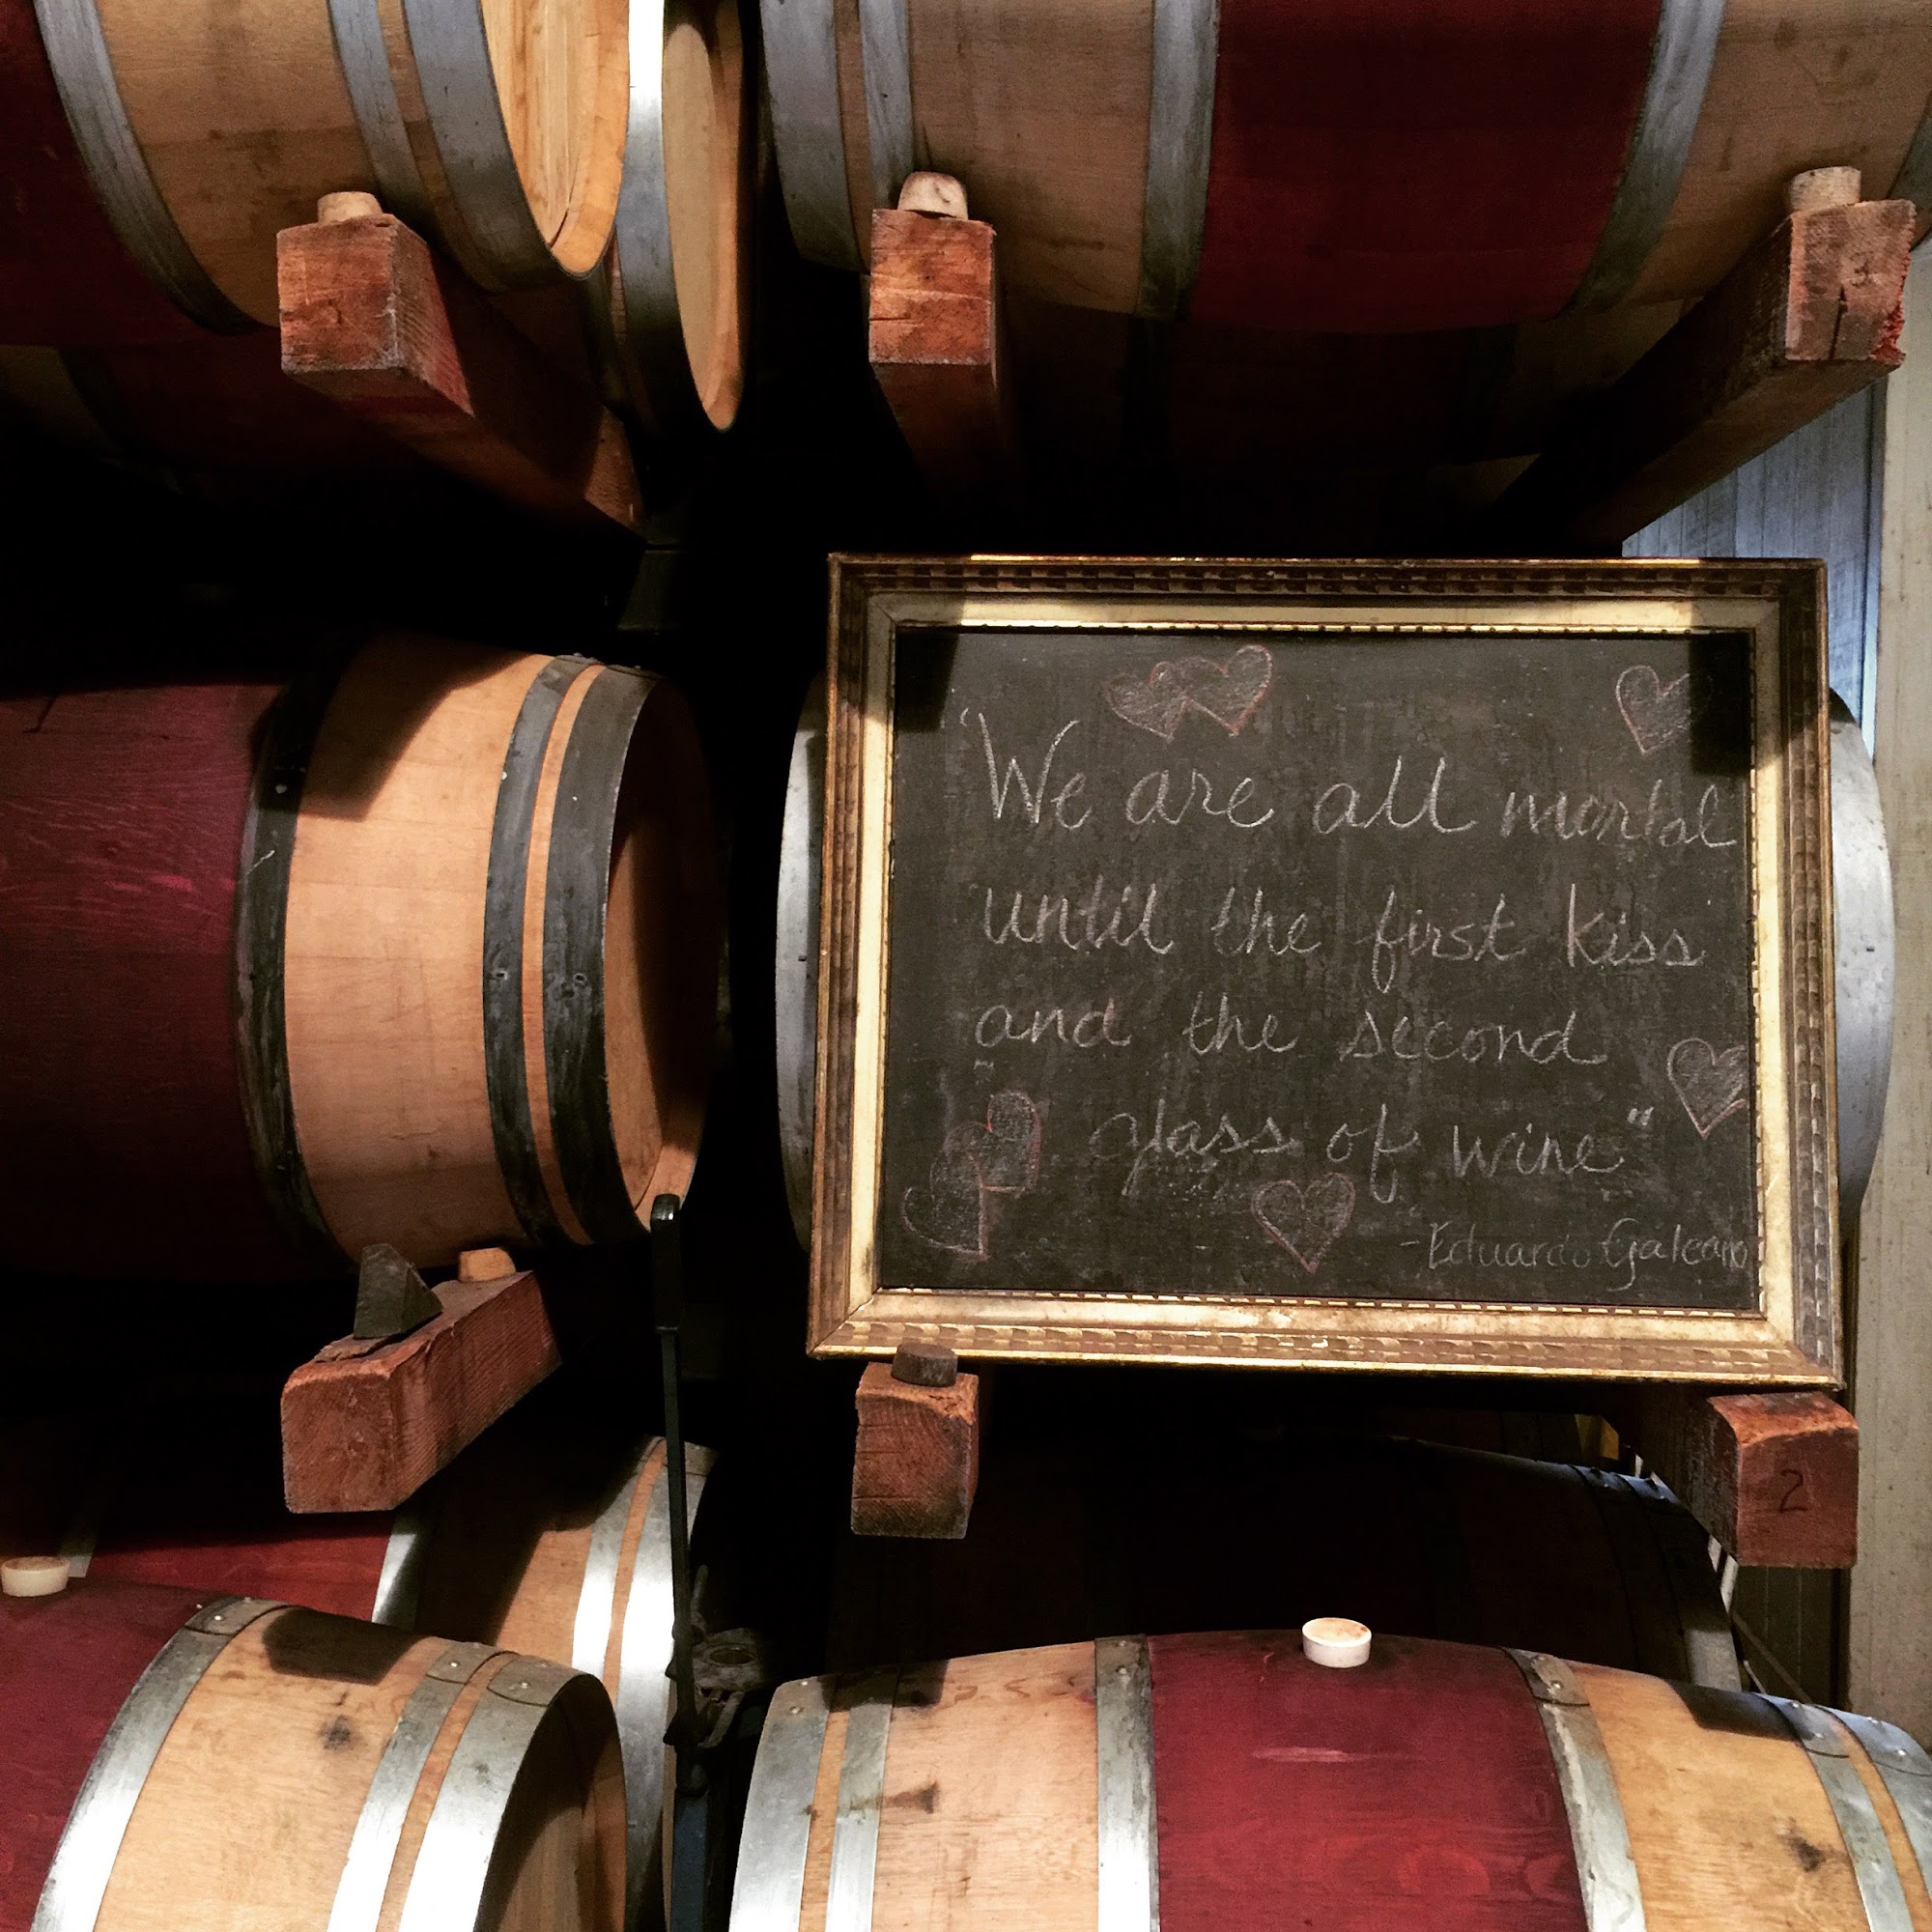 "We are all mortal
until the first kiss
and the second
glass of wine"
- Eduardo Galeano
2